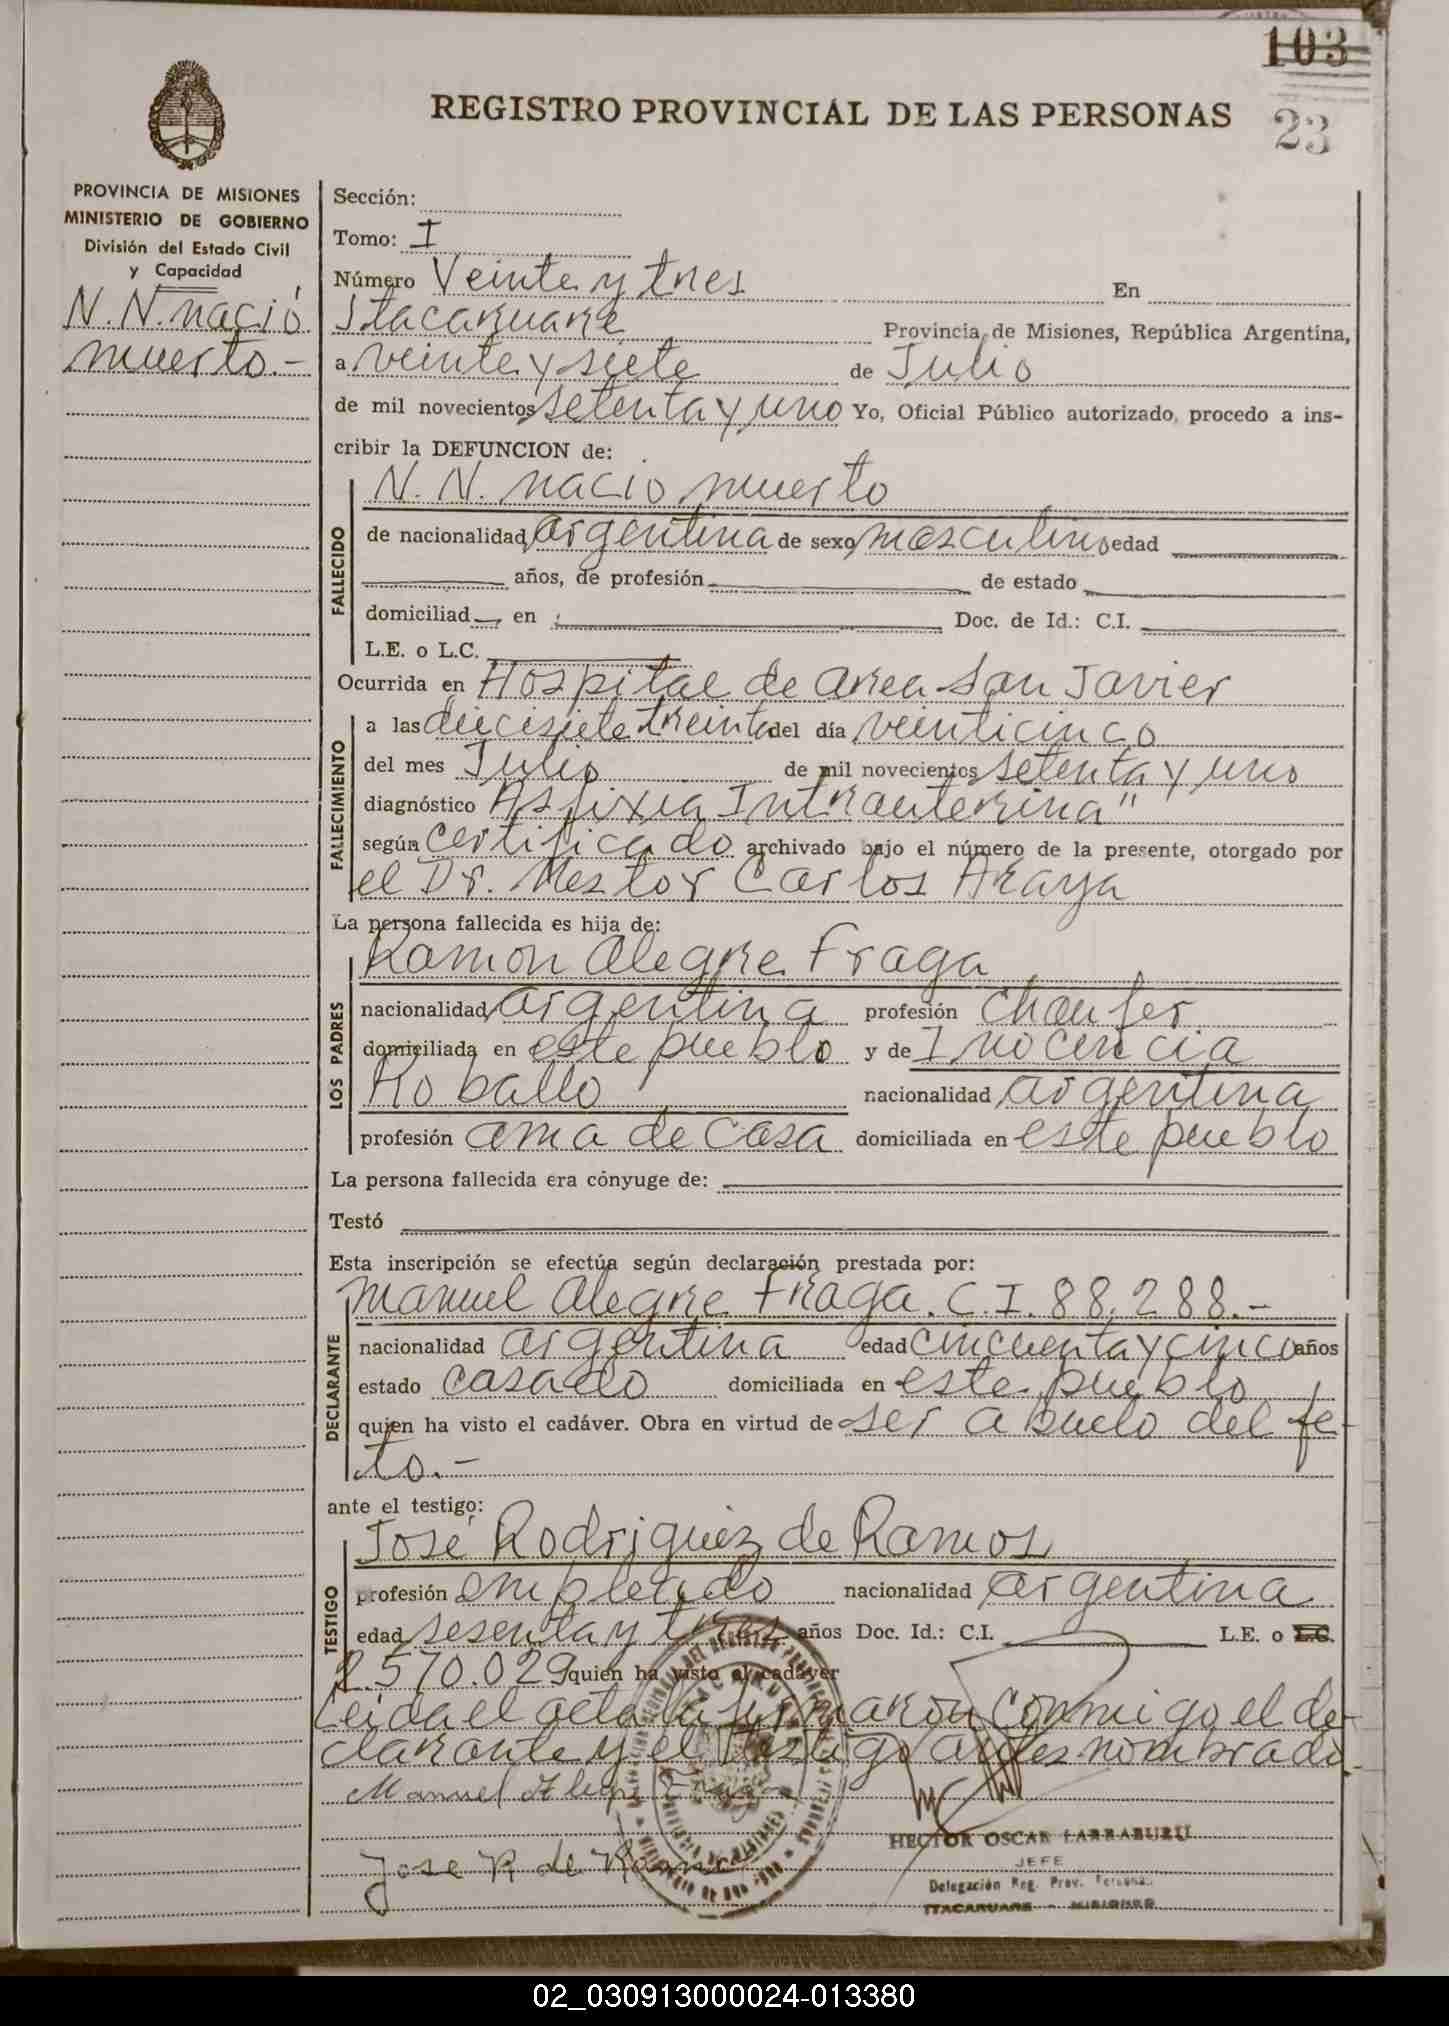 103
REGISTRO PROVINCIAL DE LAS PERSONAS
23
PROVINCIA DE MISIONES
MINISTERIO DE GOBIERNO
División del Estado Civil
y Capacidad
N. N. nació
muerto.-
Sección:
Tomo: I
Número Veinte y tres En
Itacaruaré Provincia de Misiones, República Argentina,
a veinte y siete de Julio
de mil novecientos setenta y uno Yo, Oficial Público autorizado, procedo a ins-
cribir la DEFUNCION de:
FALLECIDO
N. N. nacio muerto
de nacionalidad argentina de sexo masculino edad
años, de profesión de estado
domiciliad en Doc. de Id.: C.I.
L.E. o L.C.
Ocurrida en Hospital de area San Javier
FALLECIMIENTO
a las diecisiete treinta del día veinticinco
del mes Julio de mil novecientos setenta y uno
diagnóstico Asfixia Intrauterina"
según certificado archivado bajo el número de la presente, otorgado por
el Dr. Nestor Carlos Araya
La persona fallecida es hija de:
LOS PADRES
Ramon Alegre Fraga
nacionalidad argentina profesión chaufer
domiciliada en este pueblo y de Inocencia
Roballo nacionalidad argentina
profesión ama de casa domiciliada en este pueblo
La persona fallecida era cónyuge de:
Testó
Esta inscripción se efectúa según declaración prestada por:
DECLARANTE
Manuel Alegre Fraga. C.I. 88.288.-
nacionalidad argentina edad cincuenta y cinco años
estado casado domiciliada en este pueblo
quien ha visto el cadáver. Obra en virtud de ser abuelo del fe-
to.-
ante el testigo:
TESTIGO
José Rodriguez de Ramos
profesión empleado nacionalidad argentina
edad sesenta y tres años Doc. Id.: C.I. L.E. o L.C.
2.570.029 quien ha visto el cadáver
Leida el acta la firmaron conmigo el de-
clarante y el testigo antes nombrado
Manuel Alegre Fraga
Jose R de Ramos
HECTOR OSCAR LARRABURU
JEFE
Delegación Reg. Prov. Personas
ITACARUARE - MISIONES
02_030913000024-013380